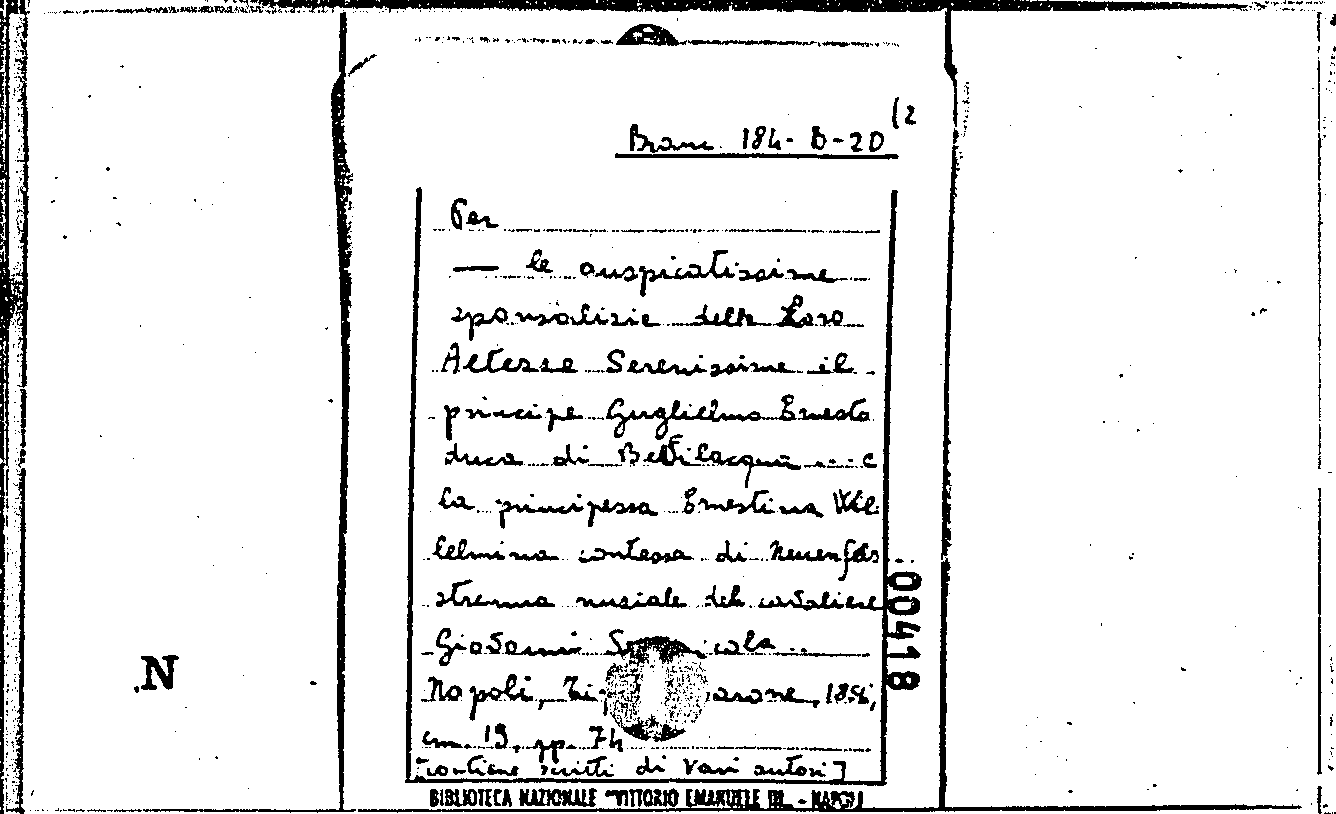 (2
Branc. 184-B-20
Per
— le auspicatissime
sponsalizie delle Loro
Altezze Serenissime il
principe Guglielmo Ernesto
duca di Bevilacqua ... e
la principessa Ernestina Wil
lelmina contessa di Neuenfels
strenna nuziale del cavaliere
Giovanni
Napoli, 1854,
cm. 19, pp. 74
[contiene scritti di vari autori]
BIBLIOTECA NAZIONALE "VITTORIO EMANUELE III" - NAPOLI
00418
N